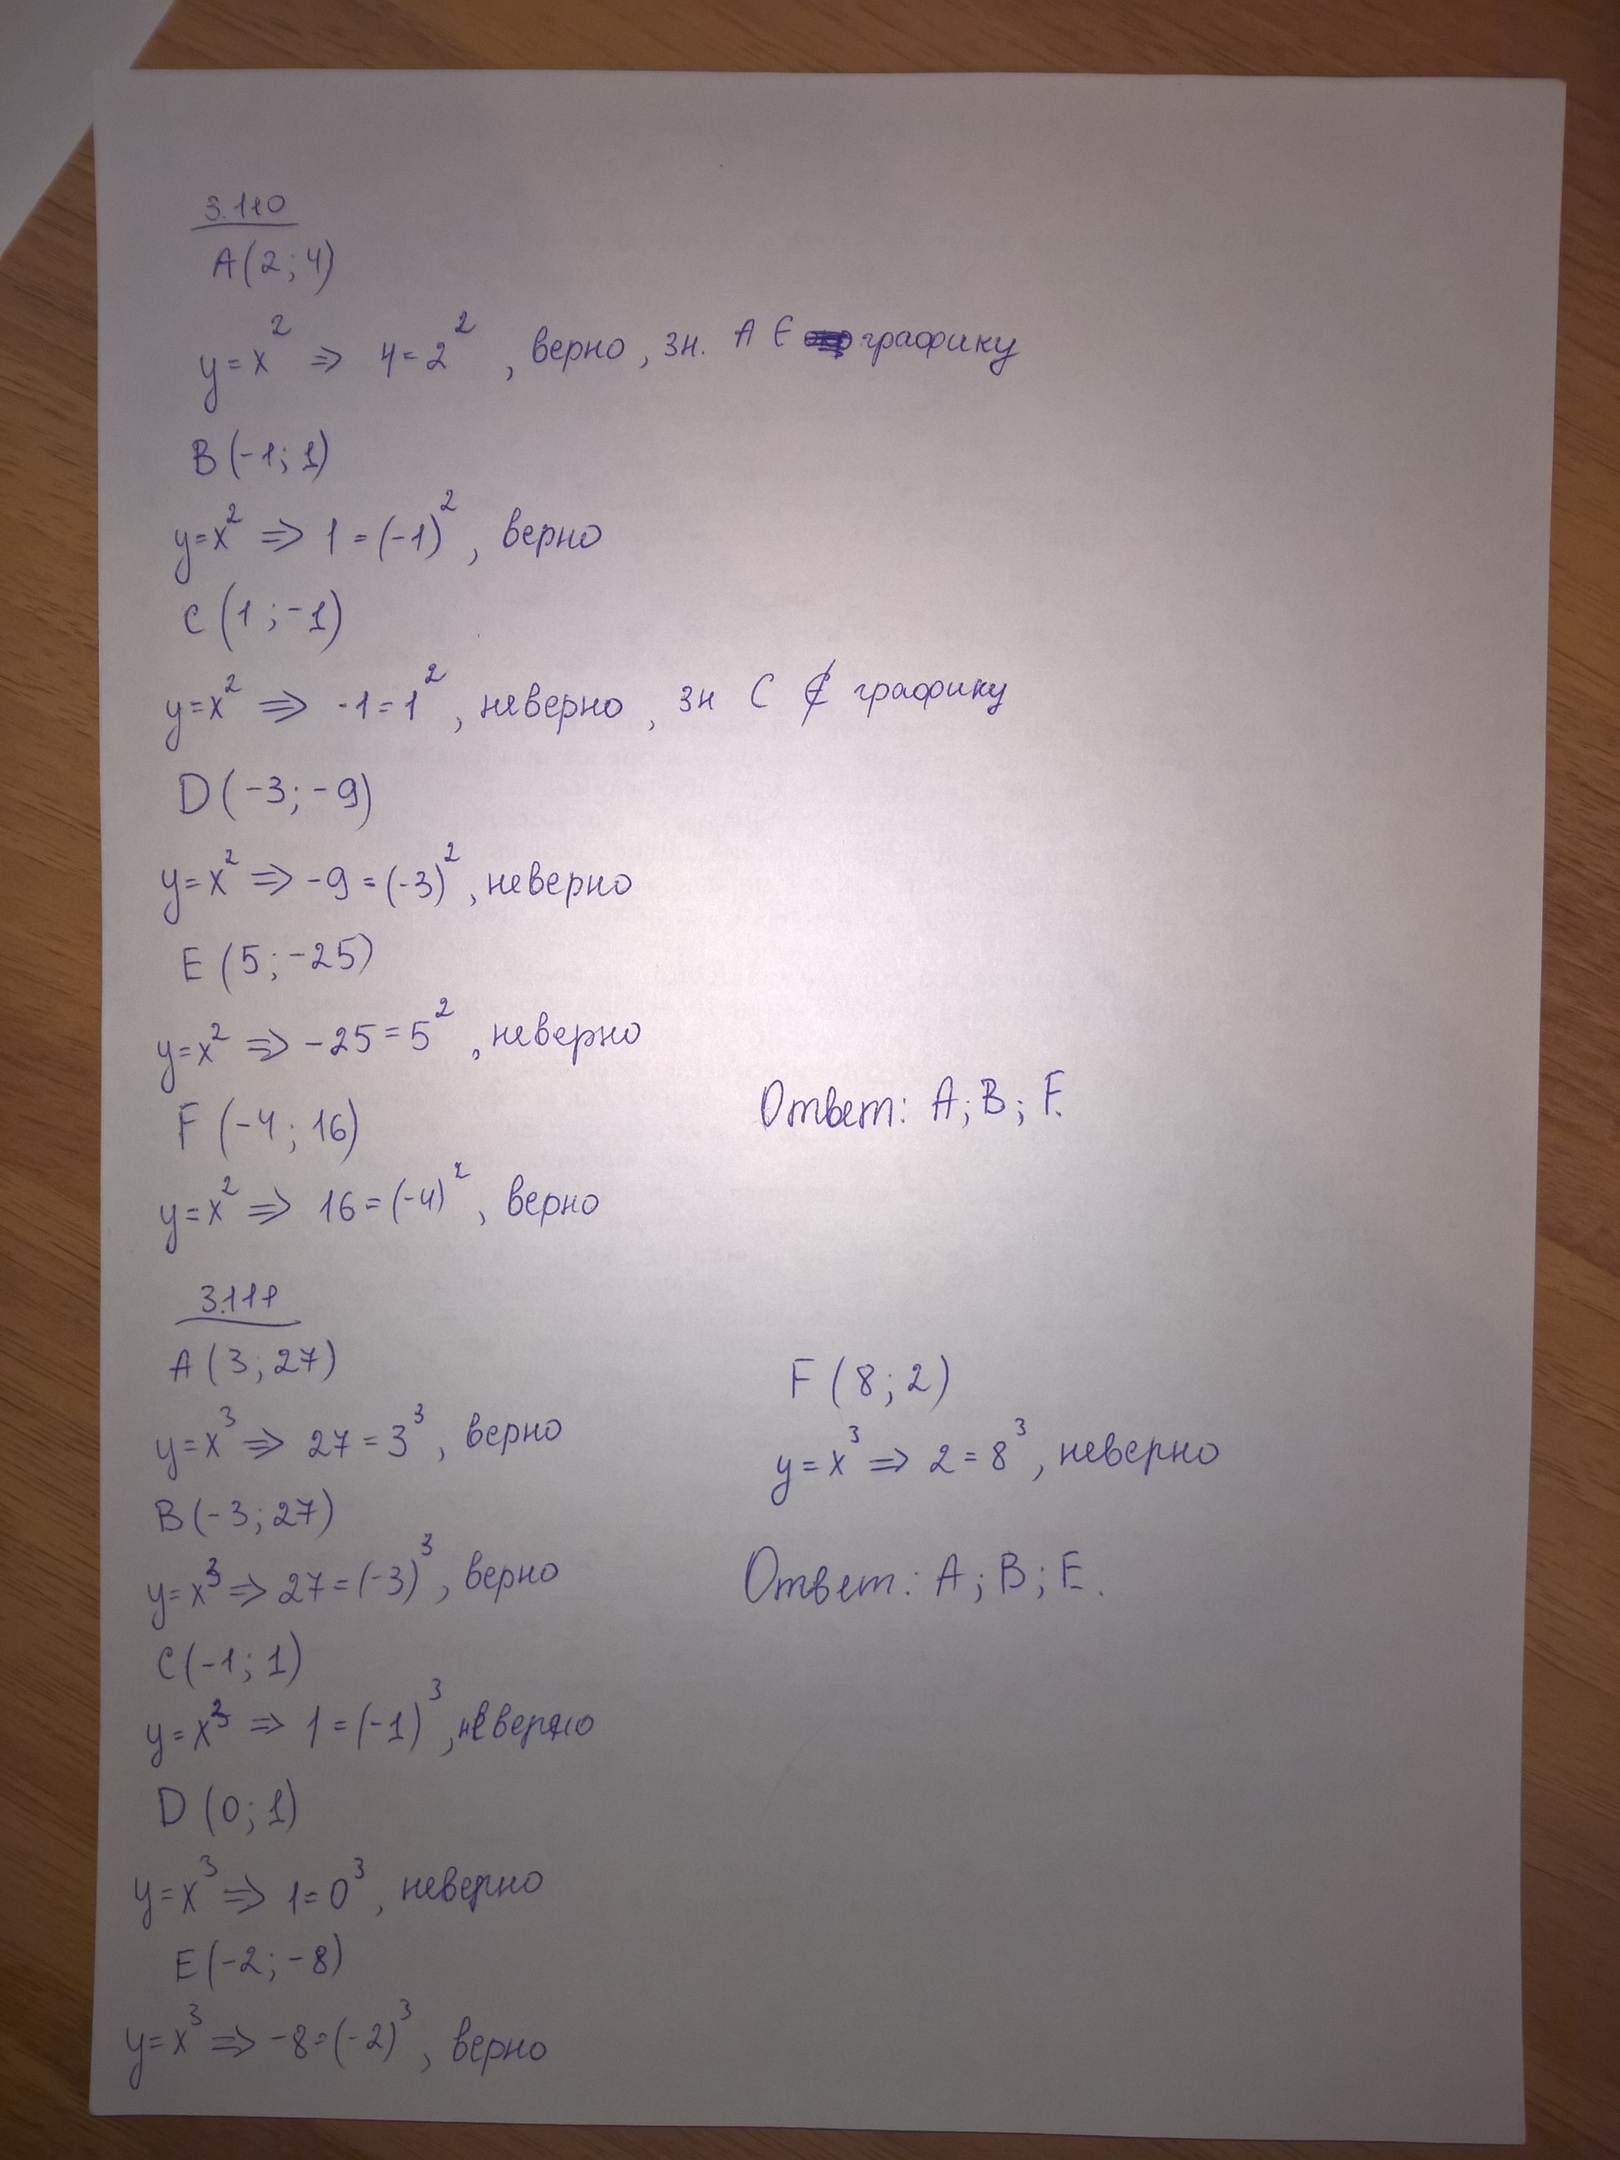 3.110
A(2; 4)
y=x² ⇒ 4=2², верно, зн. A ∈ графику
B(-1; 1)
y=x² ⇒ 1=(-1)², верно
C(1; -1)
y=x² ⇒ -1=1², неверно, зн C ∉ графику
D(-3; -9)
y=x² ⇒ -9=(-3)², неверно
E(5; -25)
y=x² ⇒ -25=5², неверно
F(-4; 16)
y=x² ⇒ 16=(-4)², верно
Ответ: A; B; F.
3.111
A(3; 27)
y=x³ ⇒ 27=3³, верно
B(-3; 27)
y=x³ ⇒ 27=(-3)³, верно
C(-1; 1)
y=x³ ⇒ 1=(-1)³, неверно
D(0; 1)
y=x³ ⇒ 1=0³, неверно
E(-2; -8)
y=x³ ⇒ -8=(-2)³, верно
F(8; 2)
y=x³ ⇒ 2=8³, неверно
Ответ: A; B; E.